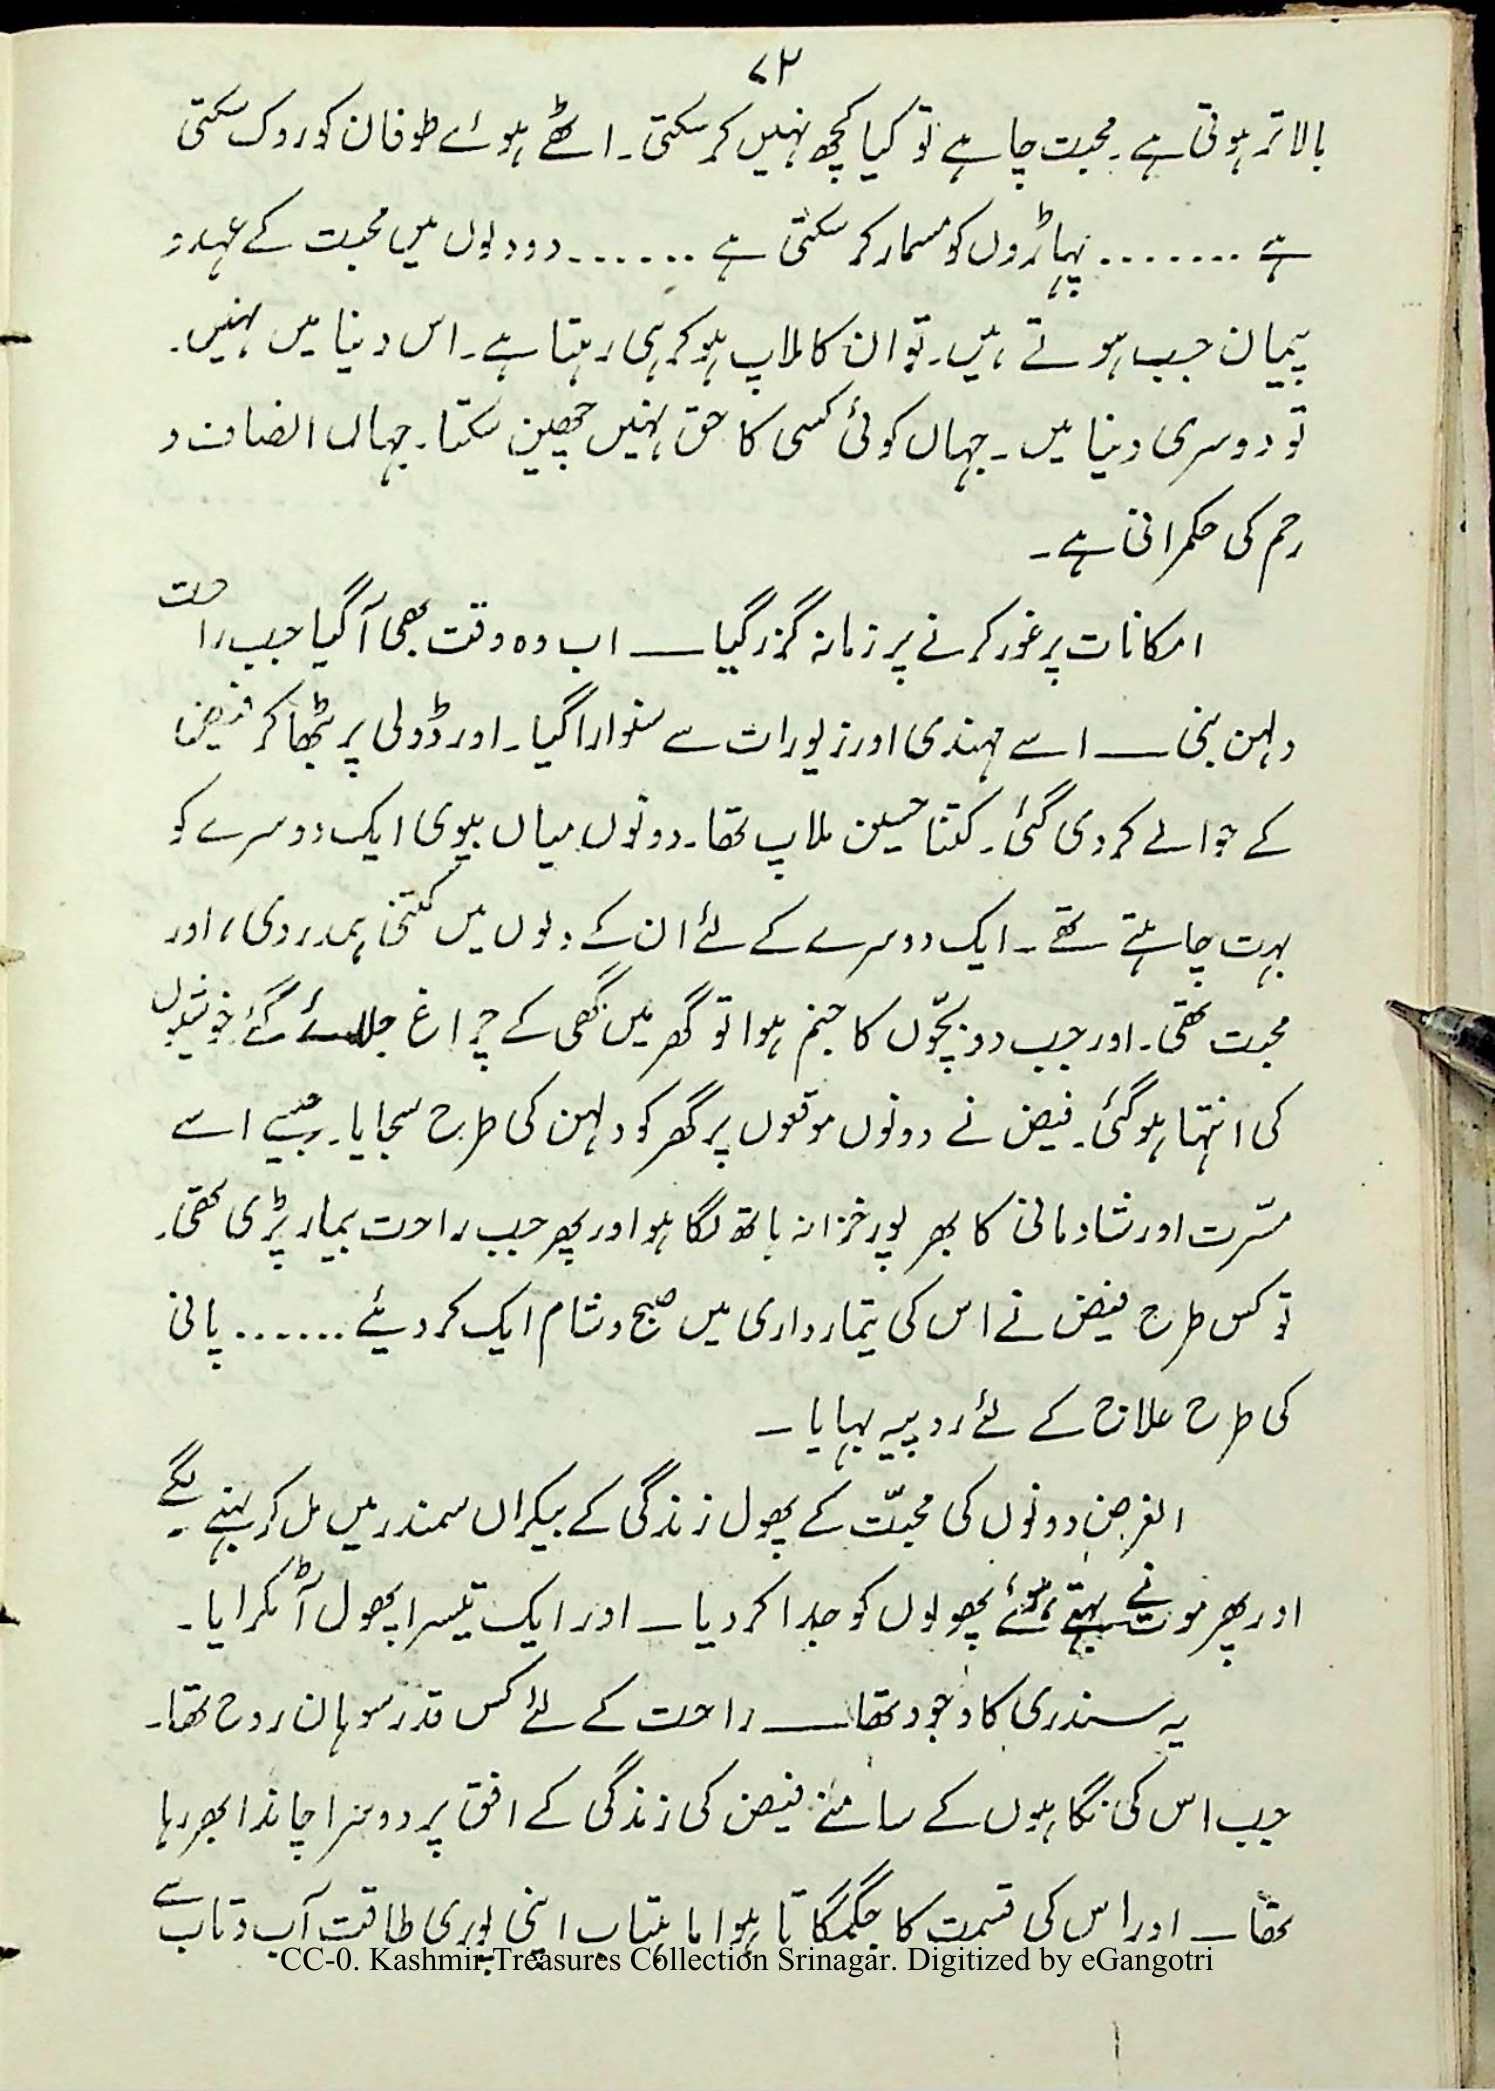 ۷۲
بالاتر ہوتی ہے۔ محبت چاہے تو کیا کچھ نہیں کر سکتی۔ اٹھے ہوئے طوفان کو روک سکتی
ہے ....... پہاڑوں کو مسمار کر سکتی ہے ...... دو دلوں میں محبت کے عہد و
پیمان جب ہوتے ہیں۔ تو ان کا ملاپ ہو کر ہی رہتا ہے۔ اس دنیا میں نہیں۔
تو دوسری دنیا میں۔ جہاں کوئی کسی کا حق نہیں چھین سکتا۔ جہاں انصاف و
رحم کی حکمرانی ہے۔
امکانات پر غور کرنے پر زمانہ گزر گیا ـــ اب وہ وقت بھی آگیا جب راحت
دلہن بنی ـــ اسے مہندی اور زیورات سے سنوارا گیا۔ اور ڈولی پر بٹھا کر فیض
کے حوالے کر دی گئی۔ کتنا حسین ملاپ تھا۔ دونوں میاں بیوی ایک دوسرے کو
بہت چاہتے تھے۔ ایک دوسرے کے لئے ان کے دلوں میں کتنی ہمدردی، اور
محبت تھی۔ اور جب دو بچّوں کا جنم ہوا تو گھر میں گھی کے چراغ جلائے گئے خوشیوں
کی انتہا ہو گئی۔ فیض نے دونوں موقعوں پر گھر کو دلہن کی طرح سجایا۔ جیسے اسے
مسّرت اور شادمانی کا بھر پور خزانہ ہاتھ لگا ہو اور پھر جب راحت بیمار پڑی تھی۔
تو کس طرح فیض نے اس کی تیمارداری میں صبح و شام ایک کر دیئے ...... پانی
کی طرح علاج کے لئے روپیہ بہایا ۔
الغرض دونوں کی محبّت کے پھول زندگی کے بیکراں سمندر میں مل کر بہنے لگے۔
اور پھر موت نے بہتے ہوئے پھولوں کو جدا کر دیا ـ اور ایک تیسرا پھول آ ٹکرایا۔
یہ سندری کا وجود تھا ـــ راحت کے لئے کس قدر سوہان روح تھا۔
جب اس کی نگاہوں کے سامنے فیض کی زندگی کے افق پر دوسرا چاند ابھر رہا
تھا ـ اور اس کی قسمت کا جگمگاتا ہوا ماہتاب اپنی پوری طاقت آب و تاب سے
CC-0. Kashmir Treasures Collection Srinagar. Digitized by eGangotri